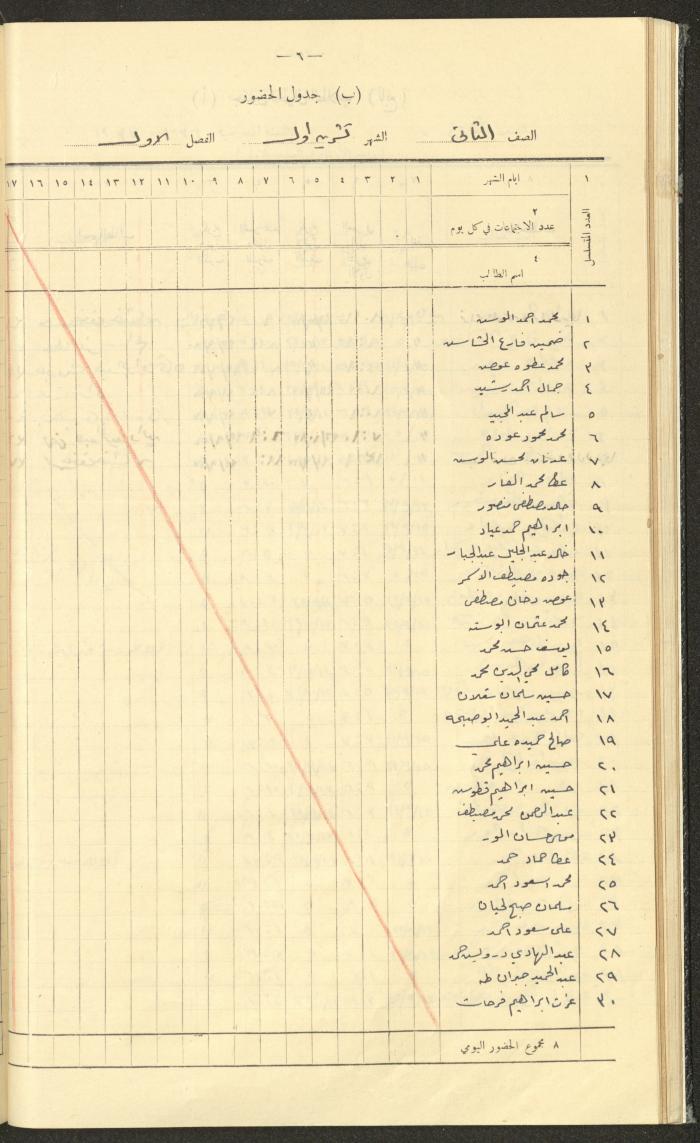 — ٦ —
(ب) جدول الحضور
الصف الثاني الشهر تشرين اول الفصل الاول
١ ايام الشهر ١ ٢ ٣ ٤ ٥ ٦ ٧ ٨ ٩ ١٠ ١١ ١٢ ١٣ ١٤ ١٥ ١٦ ١٧
العدد المتسلسل
٢
عدد الاجتماعات في كل يوم
٤
اسم الطالب
١ محمد احمد
٢ حسين
٣ محمد عطوه عوض
٤ جمال احمد رشيد
٥ سالم عبد المجيد
٦ محمد محمود عوده
٧ عدنان محسن
٨ عطا محمد الفار
٩ خالد مصطفى منصور
١٠ ابراهيم حمد عياد
١١ خالد عبد الجليل عبد الجبار
١٢ جوده مصطفى الاسمر
١٣ عوض دخان مصطفى
١٤ محمد عثمان
١٥ يوسف حسن محمد
١٦ كامل محي الدين محمد
١٧ حسين سلمان
١٨ احمد عبد الحميد ابو صبحه
١٩ صالح حميده علي
٢٠ حسين ابراهيم محمد
٢١ حسين ابراهيم قطوسه
٢٢ عبد الرحمن محمد مصطفى
٢٣ موسى حسان
٢٤ عطا حماد حمد
٢٥ محمد اسعود احمد
٢٦ سلمان صبح لحيان
٢٧ علي سعود احمد
٢٨ عبد الهادي درويش حمد
٢٩ عبد الحميد جبران طه
٣٠ عزت ابراهيم فرحات
٨ مجموع الحضور اليومي